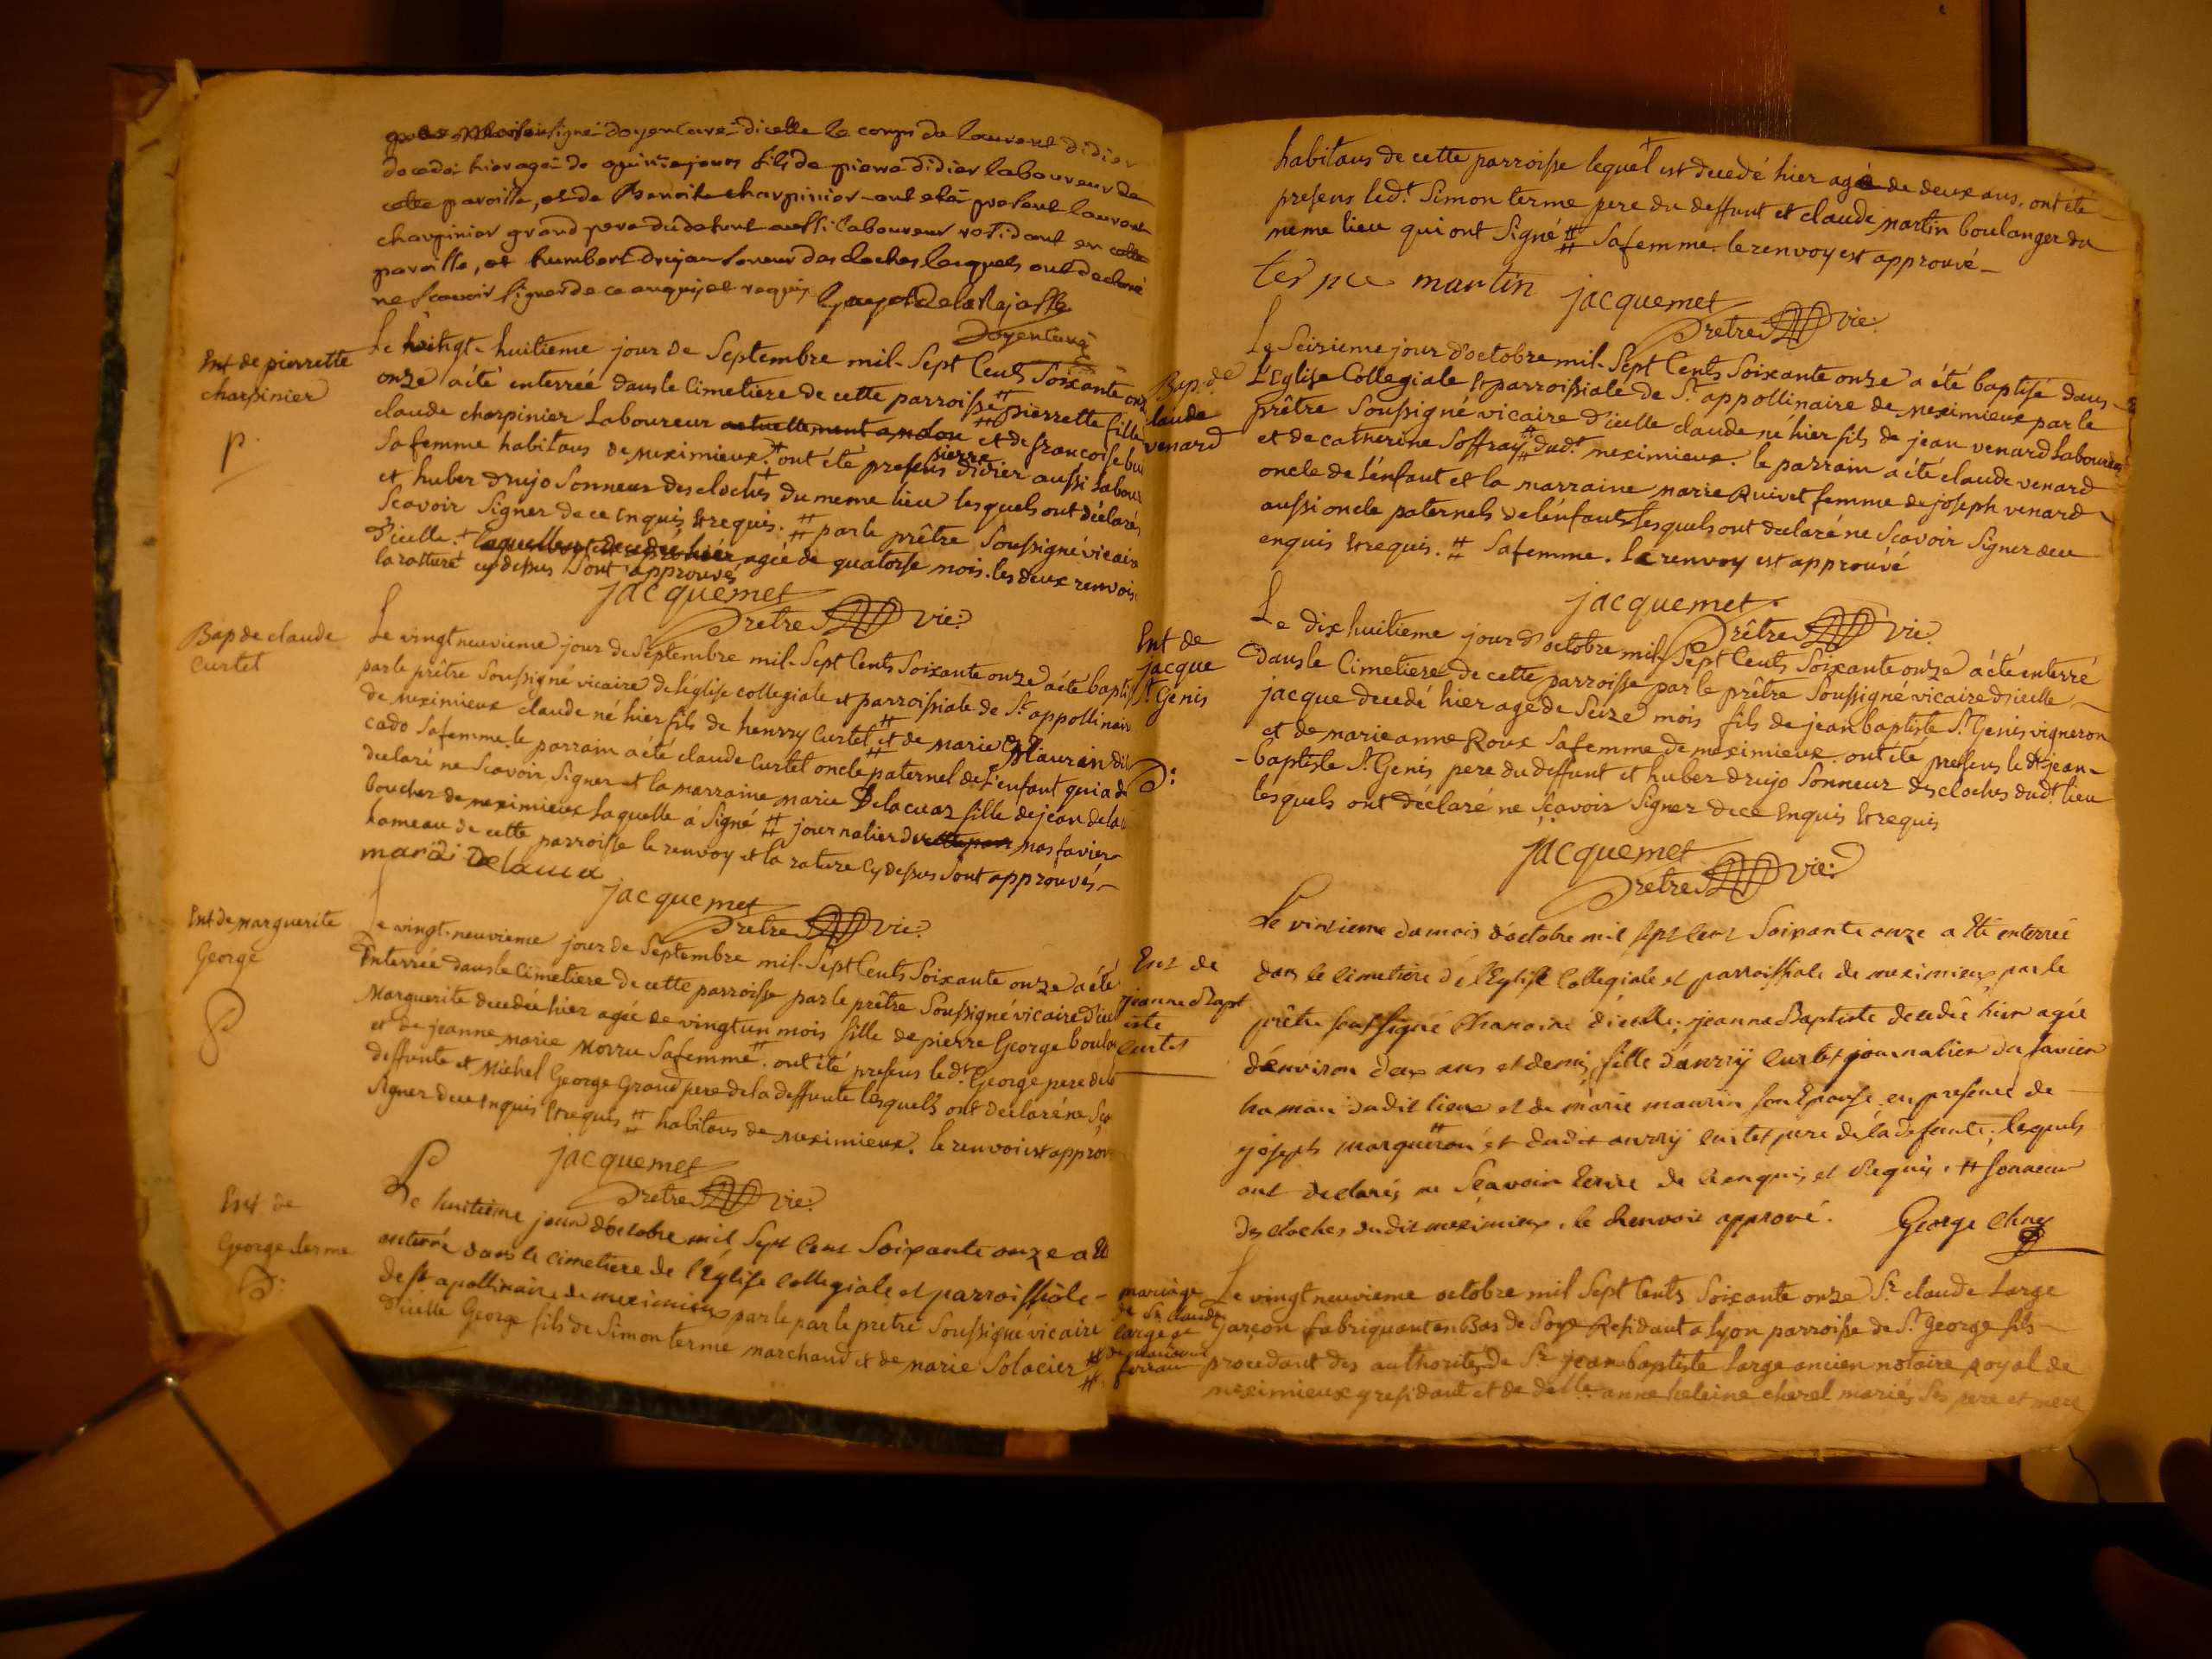 soussigné doyen curé dicelle le corps de laurent didier
decedé hier agé de quinze jours fils de pierre didier laboureur de
cette paroisse, et de Benoite charpinier ont eté present laurent
charpinier grand pere du defunt aussi laboureur residant en cette
paroisse, et humbert drujon soneur des cloches lesquels ont declaré
ne scavoir signer de ce enquis et requis
Doyen curé
Ent de pierrette
charpinier
P.
Le vingt-huitieme jour de Septembre mil-Sept Cents Soixante
onze a été enterrée dans le Cimetiere de cette parroisse # pierrette fille
claude charpinier Laboureur actuellement andou et de francoise
Sa femme habitans de meximieux. + ont été presens pierre didier aussi Labour
et huber drujo Sonneur des cloches du meme lieu lesquels ont déclaré
Scavoir Signer de ce Enquis & requis. # par le prêtre Soussigné vicaire
D'icelle. + laquelle est decedée hier agée de quatorse mois. les deux renvois
la ratture cy dessus sont approuvés
jacquemet
Prêtre Vic:
Bap de claude
Curtet
Le vingt neuvieme jour de Septembre mil-Sept Cents Soixante onze a été baptisé
par le prêtre Soussigné vicaire de l'église collegiale et parroissiale de St. appollinaire
de meximieux claude né hier fils de henrry Curtet # et de marie Maurin dit
cado Sa femme. le parrain a été claude Curtet oncle paternel de l'enfant qui a
declaré ne Scavoir Signer et la marraine marie Delacuaz fille de jean
boucher de meximieux Laquelle à Signé # journalier de cette par mas favier
hameau de cette parroisse le renvoy et la rature cy dessus sont approuvés
jacquemet
Prêtre Vic:
Ent de marguerite
George
P
Le vingt-neuvieme jour de Septembre mil-Sept Cents Soixante onze a été
Enterrée dans le Cimetiere de cette parroisse par le prêtre Soussigné vicaire D'icelle
Marguerite decedée hier agée de vingt un mois fille de pierre George
et de jeanne marie Morru Sa femme #. ont été presens led.t George pere de la
deffunte et Michel George Grand pere de la deffunte lesquels ont declaré ne
Signer de ce enquis & requis # habitans de meximieux. le renvoi est approuvé
jacquemet
Prêtre Vic:
Ent de
George terme
Le huitieme jour d'octobre mil Sept Cent Soixante onze a été
enterré dans le cimetiere de l'Eglise Collegiale et parroissiale
de St apollinaire de meximieux par le par le pretre Soussigné vicaire
D'icelle George fils de Simon terme marchand et de marie Solacier #
habitans de cette parroisse lequel + est decedé hier agé de deux ans. ont été
presens led.t Simon terme pere du deffunt et claude martin boulanger du
meme lieu qui ont Signé # Sa femme. le renvoy est approuvé
martin jacquemet
Prêtre Vic:
Bap. de
claude
venard
Le Seizieme jour d'octobre mil-Sept Cents Soixante onze a été baptisé dans
L'Eglise Collegiale & parroissiale de St. appollinaire de meximieux par le
prêtre Soussigné vicaire D'icelle claude ne hier fils de jean venard Laboureur
et de catherine Soffray # dud.t meximieux. le parrain a été claude venard
oncle de L'enfant et la marraine marie Quivet femme de joseph venard
aussi oncle paternels de l'enfant lesquels ont declaré ne Scavoir Signer de ce
enquis & requis. # Sa femme. le renvoy est approuvé
jacquemet
Prêtre Vic:
Ent de
jacque
St. Genis
P:
Le dix huitieme jour d'octobre mil Sept Cents Soixante onze a été enterré
dans le Cimetiere de cette parroisse par le prêtre Soussigné vicaire d'icelle
jacque decedé hier agé de Seize mois fils de jean baptiste St. Genis vigneron
et de marie anne Roux Sa femme de meximieux. ont été presens le dt jean-
baptiste St. Genis pere du deffunt et huber drujo Sonneur des cloches dud.t lieu
lesquels ont déclaré ne Scavoir Signer de ce Enquis & requis
jacquemet
Prêtre Vic:
Ent de
jeanne Bapt
iste
Curtet
Le vintieme du mois d'octobre mil sept cent Soixante onze a Eté enterrée
dans le cimetiere de l'Eglise Collegiale et parroissiale de meximieux par le
prêtre soussigné Chanoine d'icelle; jeanne Baptiste decedée hier agée
d'environ deux ans et demi, fille d'anrry curtet journalier du favier
hamau dudit lieux et de marie maurin son Epouse en presence de
joseph margueron # et dudit anrry curtet pere de la defunte; lesquels
ont declarés ne Scavoir Ecrire de ce enquis, et Requis. # Sonneur
des cloches dudit meximieux, le Renvoie apprové. George Chne
mariage
de Sr. claude
large et
ferrau
Le vingt neuvieme octobre mil Sept Cents Soixante onze Sr. claude Large
garçon fabriquant en Bas de Soye Residant a lyon parroisse de St. George fils
procedant des authorités de Sr. jean baptiste large ancien notaire Royal de
meximieux y residant et de delle. anne heleine cherel mariés, Ses pere et mere